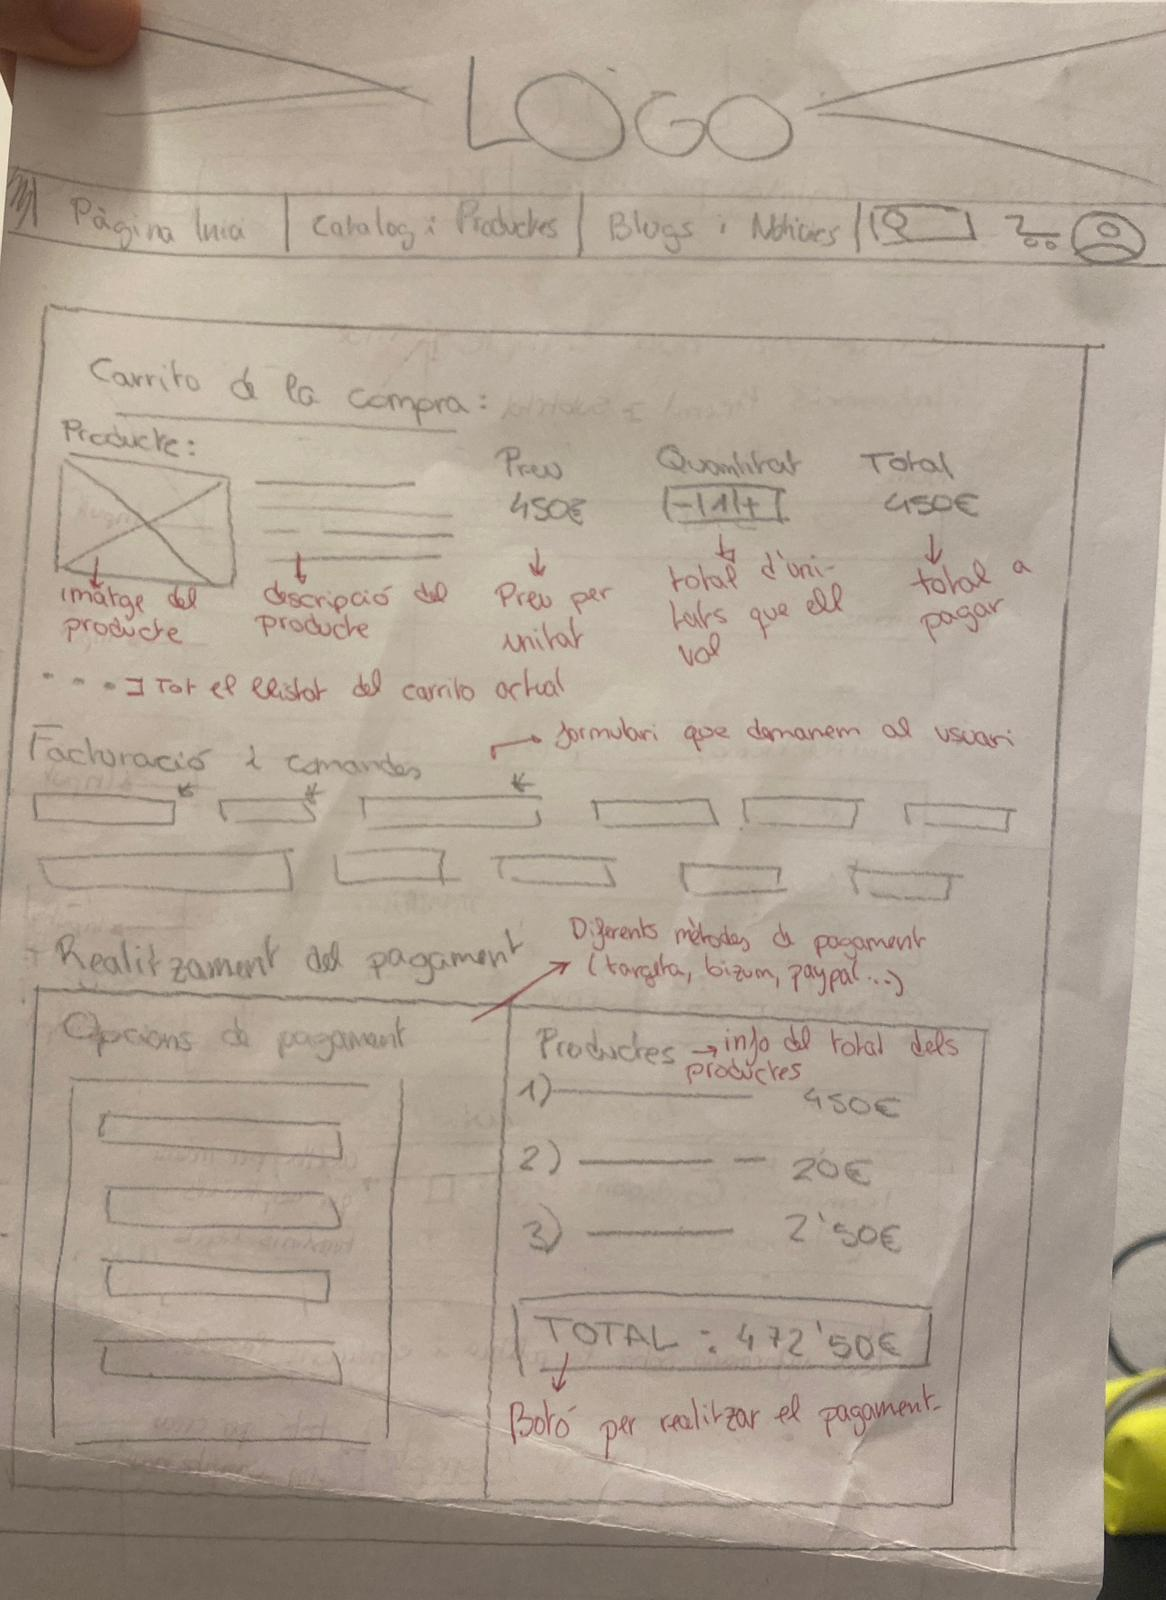 LOGO
Pàgina Inici | Catalog i Productes | Blogs i Notícies
Carrito de la compra:
Producte:
Preu Quantitat Total
450€ -|1|+ 450€
imatge del producte
descripció del producte
Preu per unitat
total d'uni-
tats que ell
vol
total a pagar
Tot el llistat del carrito actual
formulari que demanem al usuari
Facturació i comandes
Diferents mètodes de pagament
(targeta, bizum, paypal...)
Realitzament del pagament
Opcions de pagament
Productes → info del total dels
productes
1) 450€
2) 20€
3) 2'50€
TOTAL : 472'50€
Botó per realitzar el pagament.